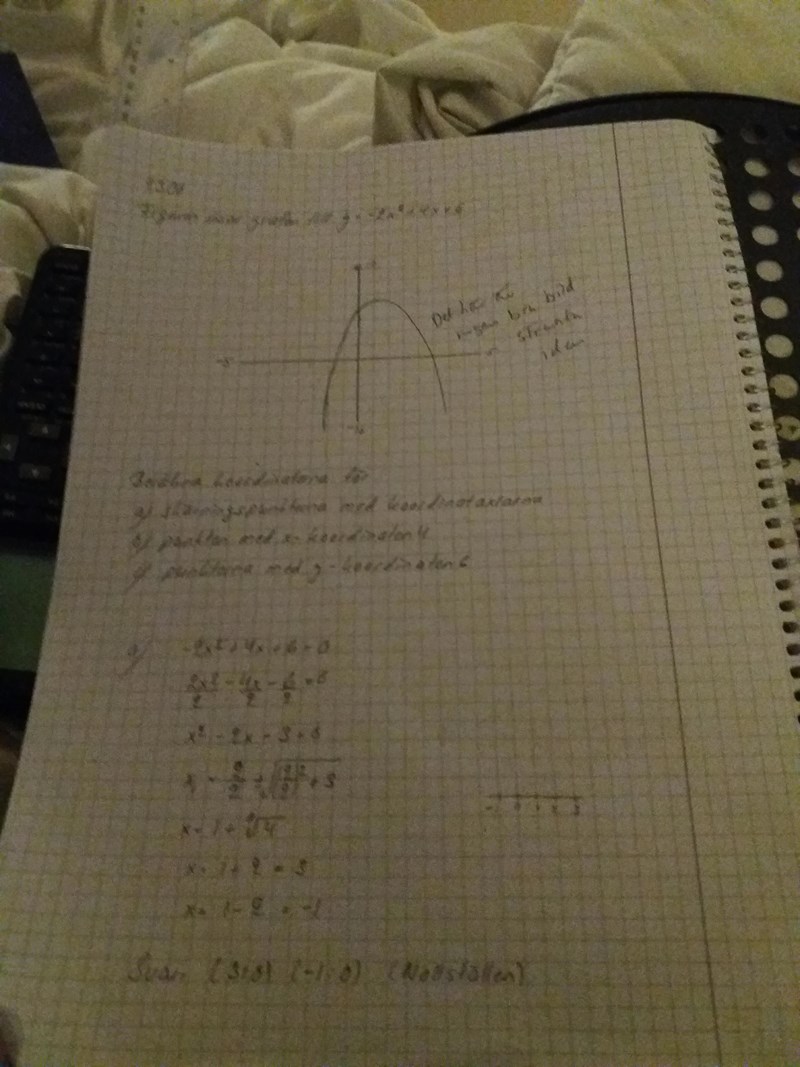 Figuren visar grafen till y = -2x² + 4x + 6
Det här är
ingen bra bild
strunta
i den
-5
Beräkna koordinaterna för
a) skärningspunkterna med koordinataxlarna
b) punkten med x-koordinaten 4
c) punkterna med y-koordinaten 6
a) -2x² + 4x + 6 = 0
2x²/2 - 4x/2 - 6/2 = 0
x² - 2x - 3 = 0
x = 2/2 ± √((2/2)² + 3)
x = 1 ± √4
x = 1 + 2 = 3
x = 1 - 2 = -1
-1 0 1 2 3
Svar: (3;0) (-1;0) (Nollställen)